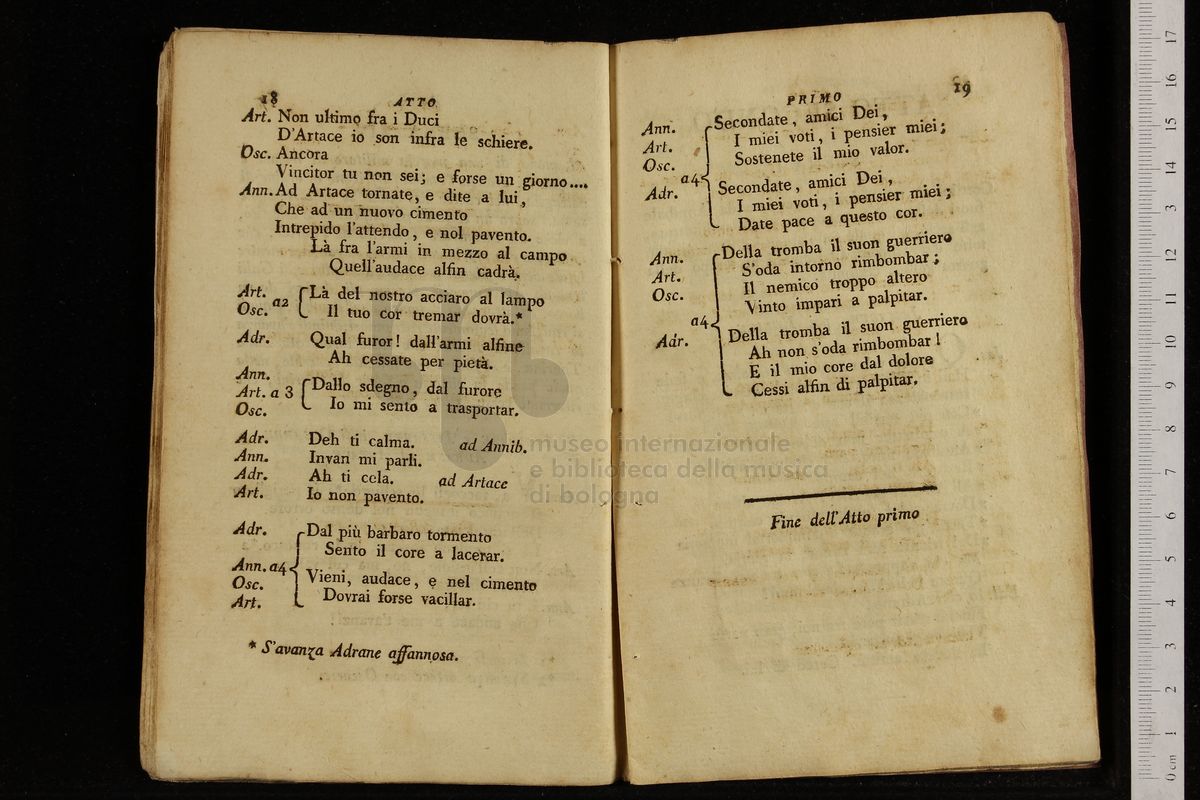 18 ATTO
Art. Non ultimo fra i Duci
D'Artace io son infra le schiere.
Osc. Ancora
Vincitor tu non sei; e forse un giorno....
Ann. Ad Artace tornate, e dite a lui,
Che ad un nuovo cimento
Intrepido l'attendo, e nol pavento.
Là fra l'armi in mezzo al campo
Quell'audace alfin cadrà.
Art. Là del nostro acciaro al lampo
Osc. a2 Il tuo cor tremar dovrà.*
Adr. Qual furor! dall'armi alfine
Ah cessate per pietà.
Ann.
Art. a 3 Dallo sdegno, dal furore
Osc. Io mi sento a trasportar.
Adr. Deh ti calma. ad Annib.
Ann. Invan mi parli.
Adr. Ah ti cela. ad Artace
Art. Io non pavento.
Adr. Dal più barbaro tormento
Sento il core a lacerar.
Ann. a4
Osc. Vieni, audace, e nel cimento
Art. Dovrai forse vacillar.
* S'avanza Adrane affannosa.
PRIMO 19
Ann. Secondate, amici Dei,
Art. I miei voti, i pensier miei;
Osc. Sostenete il mio valor.
a4
Adr. Secondate, amici Dei,
I miei voti, i pensier miei;
Date pace a questo cor.
Ann. Della tromba il suon guerriero
Art. S'oda intorno rimbombar;
Osc. Il nemico troppo altero
Vinto impari a palpitar.
a4
Adr. Della tromba il suon guerriero
Ah non s'oda rimbombar!
E il mio core dal dolore
Cessi alfin di palpitar.
Fine dell'Atto primo
museo internazionale
e biblioteca della musica
di bologna
0 cm 1 2 3 4 5 6 7 8 9 10 11 12 13 14 15 16 17